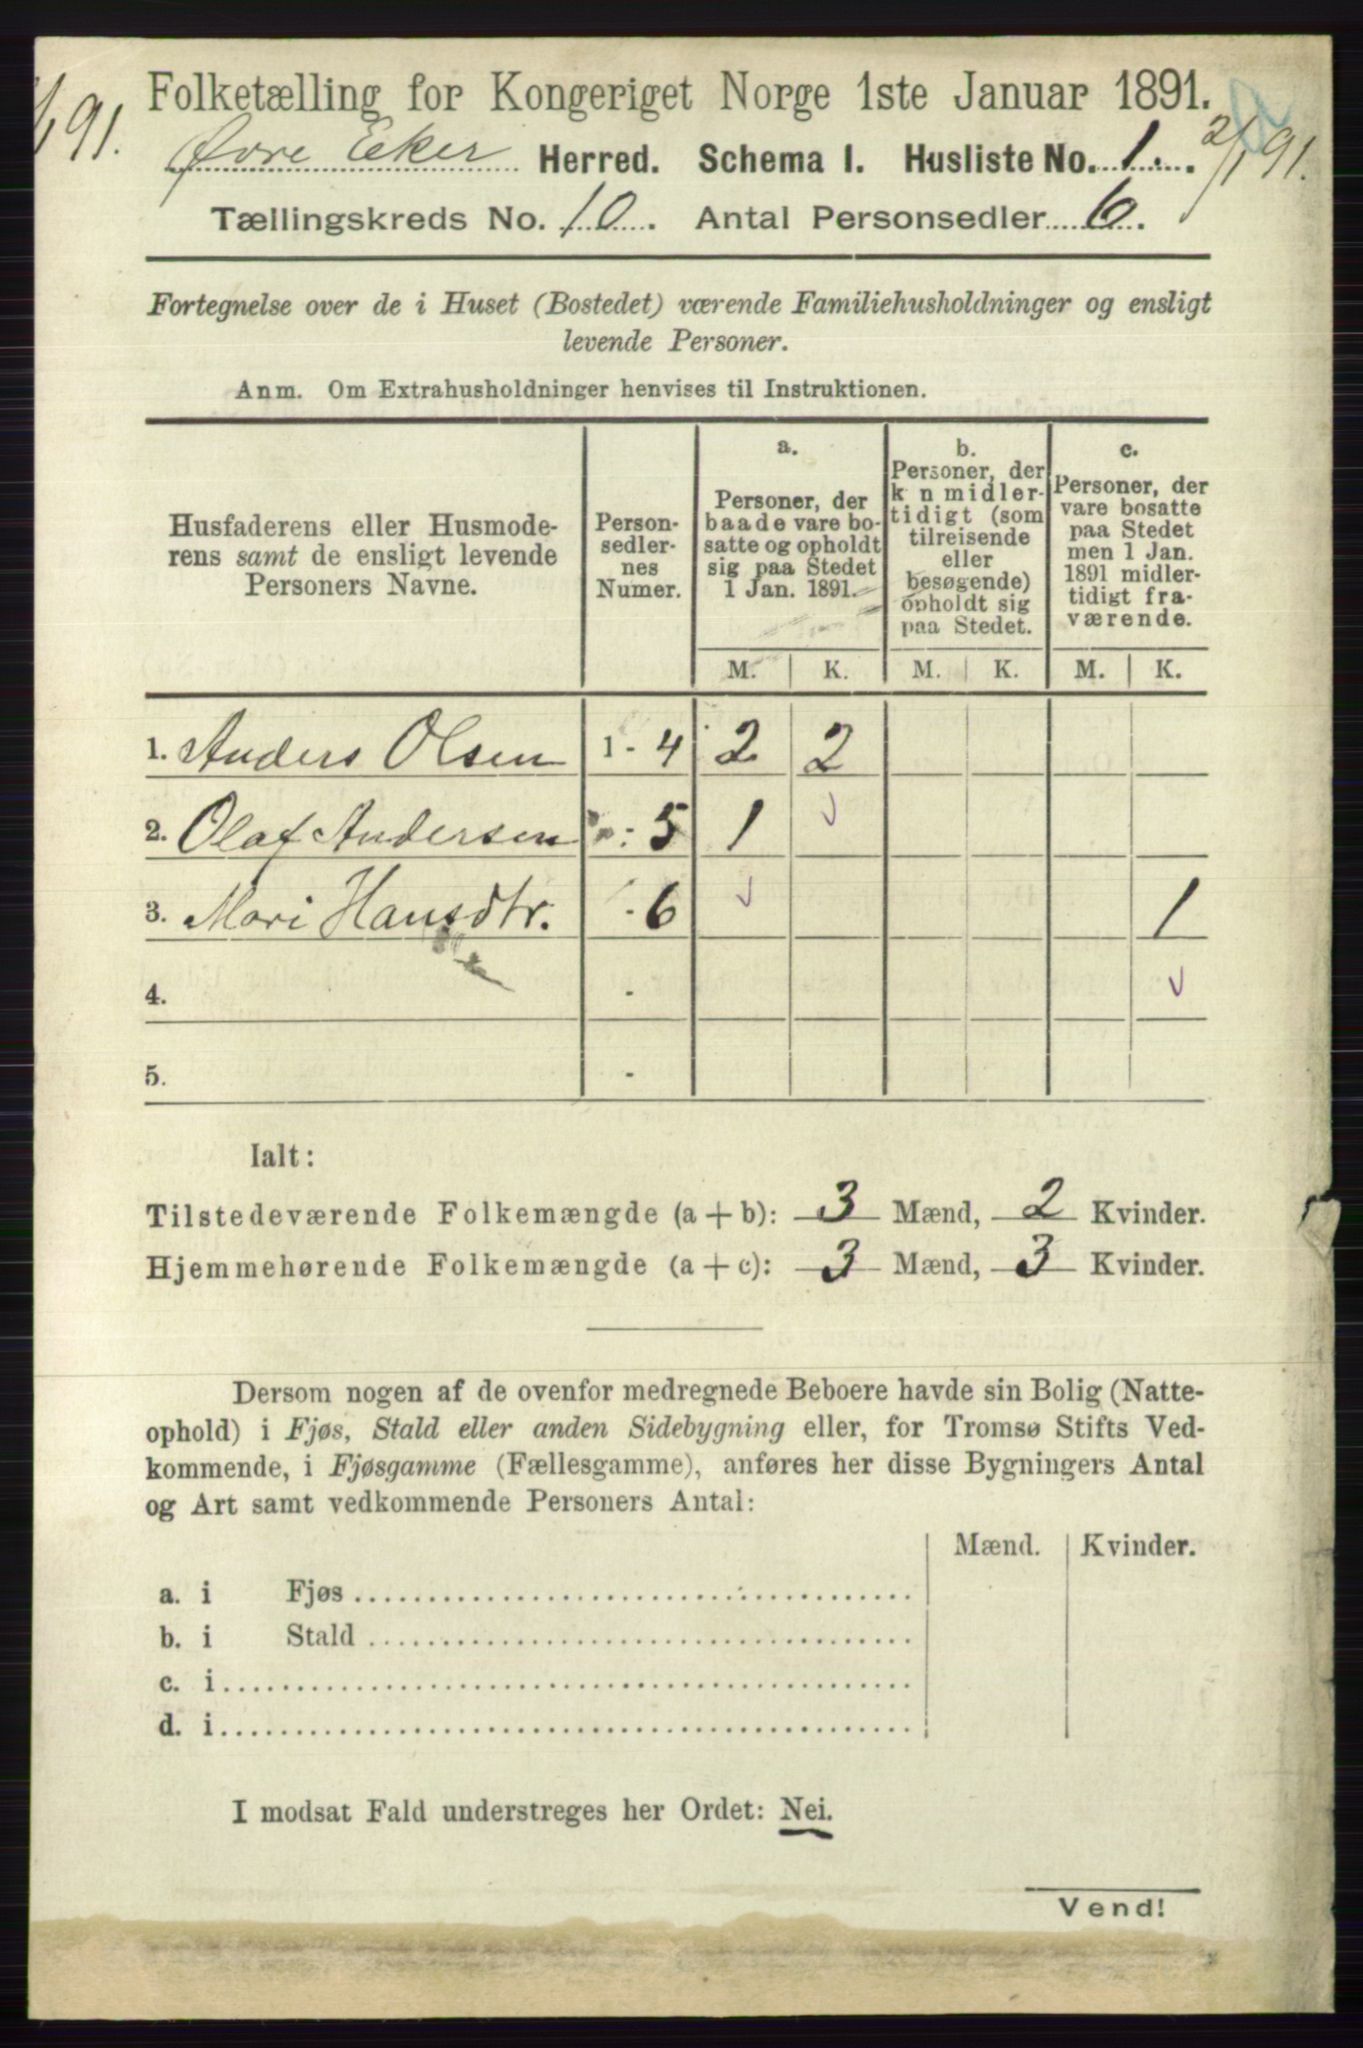 Folketælling for Kongeriget Norge 1ste Januar 1891.
/191.
2/191.
Øvre Eker Herred. Schema I. Husliste No. 1.
Tællingskreds No. 10. Antal Personsedler 6.
Fortegnelse over de i Huset (Bostedet) værende Familiehusholdninger og ensligt
levende Personer.
Anm. Om Extrahusholdninger henvises til Instruktionen.
Husfaderens eller Husmode-
rens samt de ensligt levende
Personers Navne.
Person-
sedler-
nes
Numer.
a.
Personer, der
baade vare bo-
satte og opholdt
sig paa Stedet
1 Jan. 1891.
b.
Personer, der
k n midler-
tidigt (som
tilreisende
eller
besøgende)
opholdt sig
paa Stedet.
c.
Personer, der
vare bosatte
paa Stedet
men 1 Jan.
1891 midler-
tidigt fra-
værende.
M. K. M. K. M. K.
1. Anders Olsen 1 - 4 2 2
2. Olaf Andersen 5 1
3. Mari Hansdtr. - 6 1
4. -
5. -
Ialt:
Tilstedeværende Folkemængde (a + b): 3 Mænd, 2 Kvinder.
Hjemmehørende Folkemængde (a + c): 3 Mænd, 3 Kvinder.
Dersom nogen af de ovenfor medregnede Beboere havde sin Bolig (Natte-
ophold) i Fjøs, Stald eller anden Sidebygning eller, for Tromsø Stifts Ved-
kommende, i Fjøsgamme (Fællesgamme), anføres her disse Bygningers Antal
og Art samt vedkommende Personers Antal:
Mænd. Kvinder.
a. i Fjøs
b. i Stald
c. i
d. i
I modsat Fald understreges her Ordet: Nei.
Vend!